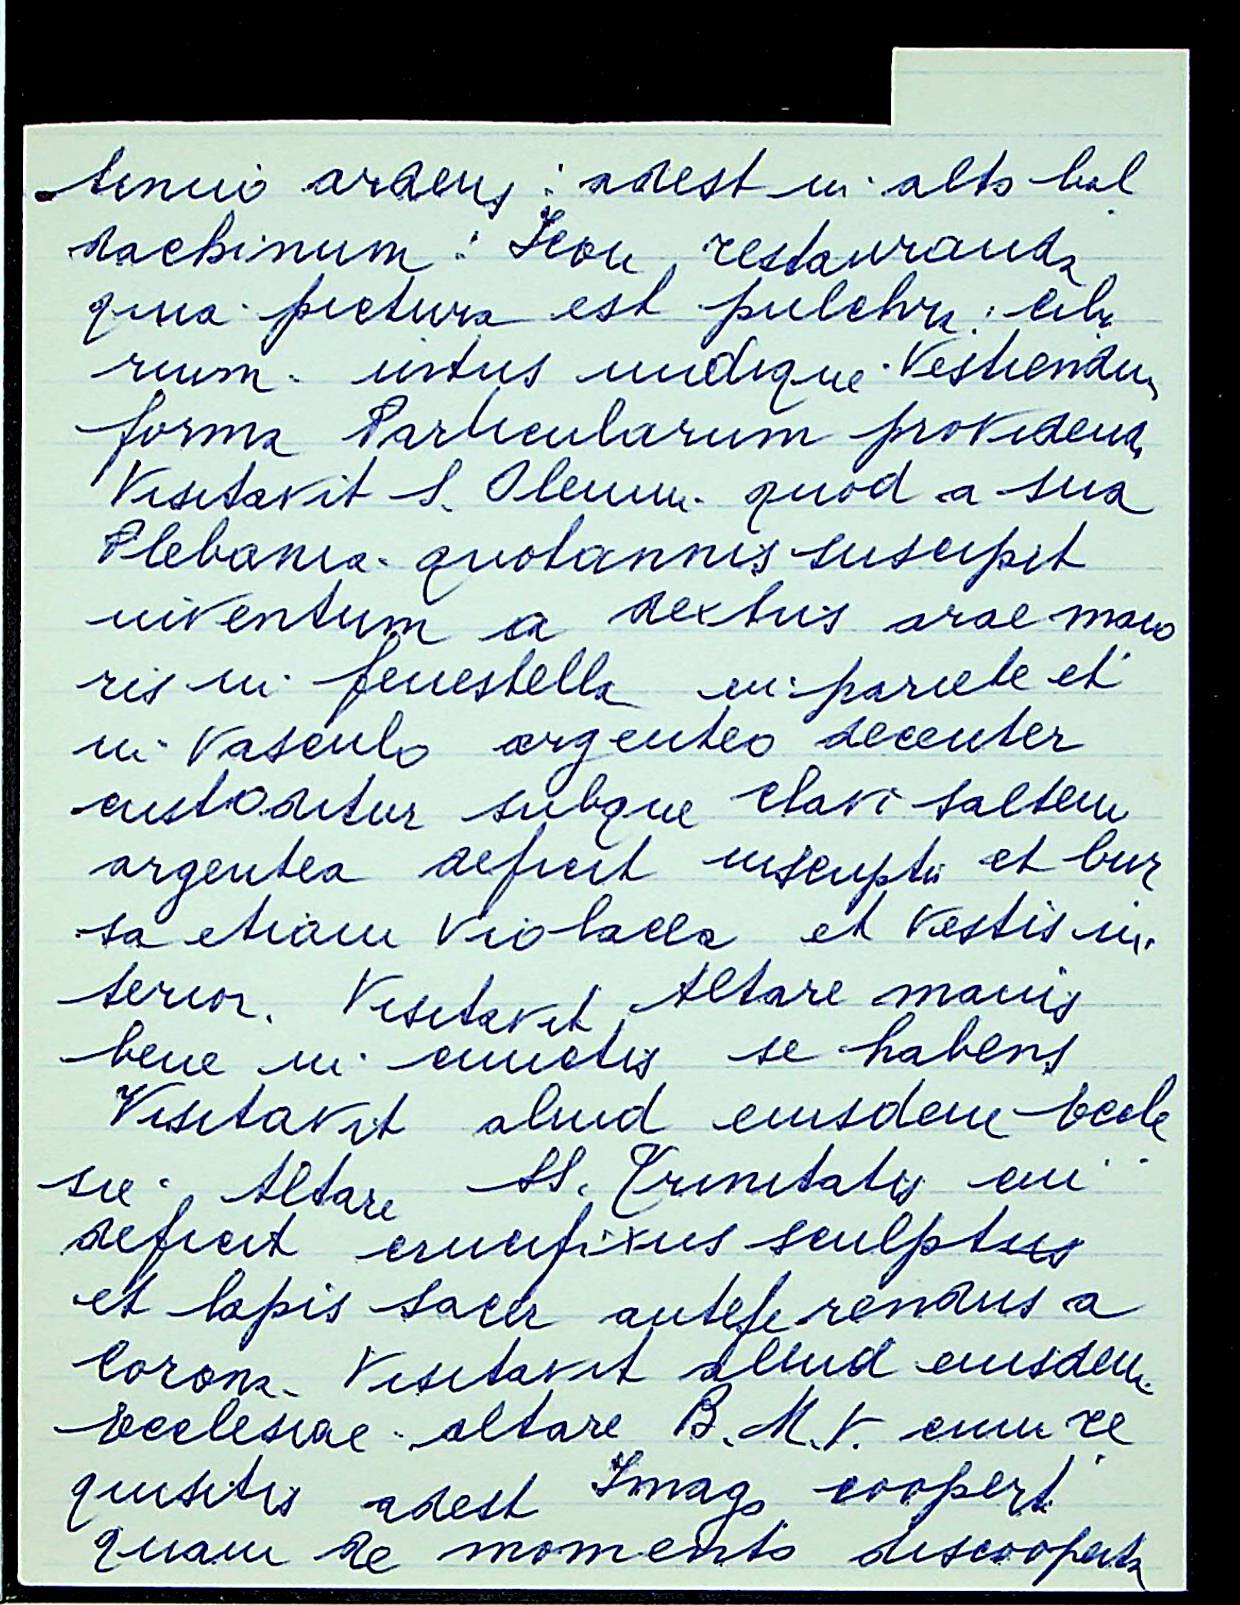 tinuio ardens: adest in alto bal
dachinum: Icon restauranda
quia pictura est pulchra: cibo
rium intus undique vestiendum
forma Particularum providenda
Visitavit S. Oleum quod a sua
Plebania quotannis suscipit
inventum a dextris arae maio
ris in fenestella in pariete et
in vasculo argenteo decenter
custoditur subque clavi saltem
argentea deficit et bur
sa etiam violacea et vestis in
terior. Visitavit Altare maius
bene in cunctis se habens
Visitavit aliud eiusdem Eccle
sie Altare SS. Trinitatis cui
deficit crucifixus sculptus
et lapis sacer anteferendus a
Corona. Visitavit aliud eiusdem
Ecclesiae altare B. M. V. cum re
quisitis adest Imago coopert
quam de momento discooperta